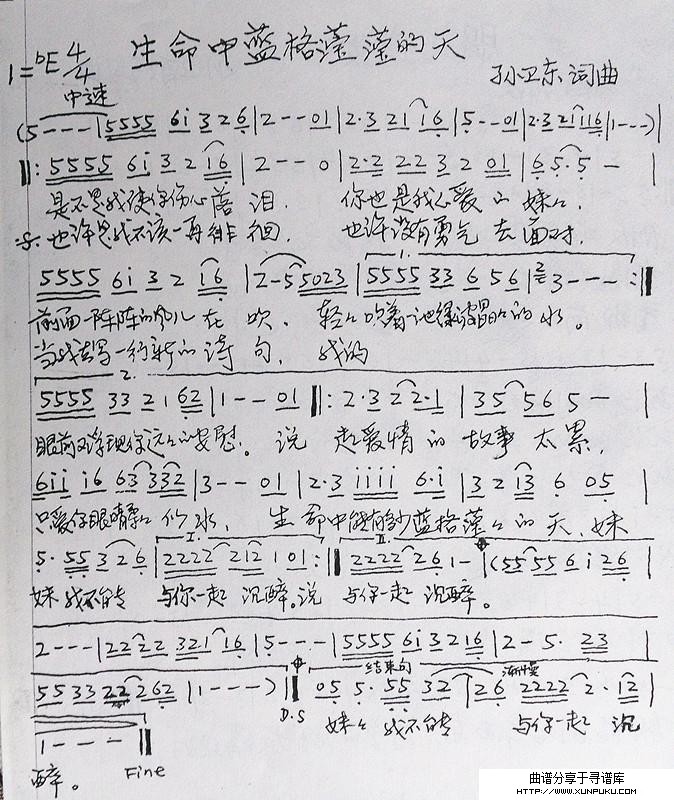 生命中蓝格莹莹的天
1=bE 4/4
中速
孙卫东词曲
(5 - - - | 5555 6i 3 2 6 | 2 - - 01 | 2·3 21 16 | 5 - - 01 | 2·3 21116 | 1 - - -) |
‖: 5555 6i 3 2 16 | 2 - - 0 | 2·2 22 3 2 01 | 6 5·5 - |
是不是我使你伤心落泪. 你也是我心爱的妹妹.
也许是我不该一再徘徊. 也许没有勇气去面对.
1.
5555 6i 3 2 16 | 2 - 5 5023 | 5555 33 6 56 | 3 - - - :‖
前面一阵阵的风儿在吹. 轻轻吹着一池绿波晶晶的水。
当我写一行新的诗句. 我的
2.
5555 33 2 1 62 | 1 - - 01 ‖: 2·3 2 2·1 | 35 56 5 - |
眼前又浮现你远的安慰。说起爱情的故事太累.
6ii i6 63 332 | 3 - - 01 | 2·3 iiii 6·i | 3 2 13 6 05 |
只爱你眼睛柔柔似水. 生命中能有多少蓝格莹莹的天. 妹
I. II.
5· 55 3 2 6 | 2222 212 1 01 :‖ 2222 26 1 - | (55 55 6 i 26 |
妹我不能 与你一起沉醉。说 与你一起沉醉。
2 - - - | 2222 321 16 | 5 - - - | 5555 6i 3216 | 2 - 5· 23 |
结束句 渐慢
55 33 22 262 | 1 - - -) ‖ 05 5· 55 32 | 26 2222 2· 12 |
D.S 妹妹 我不能 与你一起沉
1 - - - ‖
醉。 Fine
曲谱分享于寻谱库
HTTP://WWW.XUNPUKU.COM